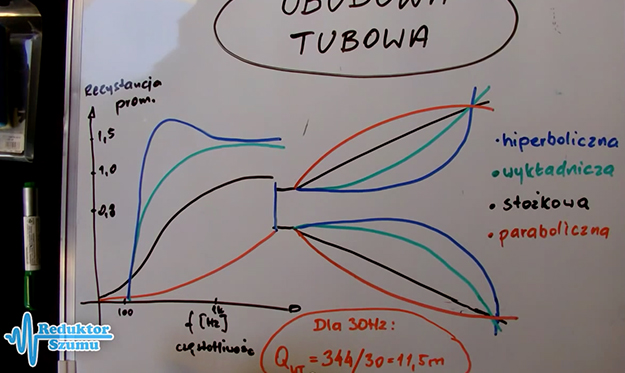 OBUDOWA
TUBOWA
Rezystancja
prom.
1,5
1,0
0,8
100
1k
f [Hz]
częstotliwość
• hiperboliczna
• wykładnicza
• stożkowa
• paraboliczna
Dla 30Hz:
= 344/30 = 11,5m
Reduktor
Szumu